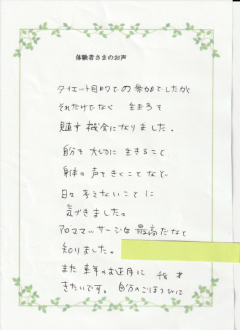 体験者さまのお声
ダイエット目的での参加でしたが
それだけでなく 生き方を
見直す機会になりました。
自分を大切に生きること
身体の声をきくことなど、
日々 考えないことに
気づきました。
アロママッサージは最高だなと
知りました。
また 来年のお正月に
きたいです。自分のごほうびに